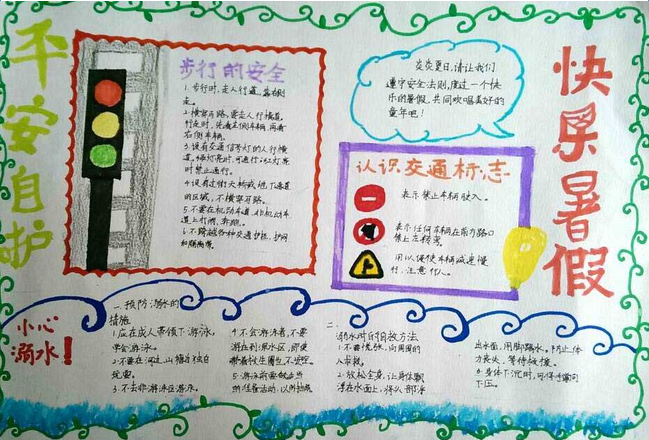 平安自护
步行的安全
1.步行时,走人行道,靠右侧
走。
2.横穿马路,要走人行横道,
行走时,先看左侧车辆,再看
右侧车辆。
3.设有交通信号灯的人行横
道,绿灯亮时,可通行;红灯亮
时禁止通行。
4.设有过街天桥或地下通道
的区域,不横穿马路。
5.不要在机动车道、非机动车
道上打闹、奔跑。
6.不跨越各种交通护栏、护网
和隔离带。
炎炎夏日,请让我们
遵守安全法则,度过一个快
乐的暑假,共同欢唱美好的
童年吧!
快乐暑假
认识交通标志
表示禁止车辆驶入。
表示任何车辆在前方路口
禁止左转弯。
用以促使车辆减速慢
行,注意行人。
小心
溺水!
一、预防溺水的
措施
1.应在成人带领下游泳,
学会游泳。
2.不要在河边、山塘边
玩耍。
3.不去非游泳区游泳。
4.不会游泳者,不要
游到深水区,即使
带着救生圈也不安全。
5.游泳前要做适当
的准备活动,以防抽筋
二、
溺水时的自救方法
1.不要慌张,向周围的
人
2.放松全身,让身体飘
浮在水面上,将头部浮
出水面,用脚踢水,防止体
力丧失,等待救援。
3.身体下沉时,可将手掌向
下压。